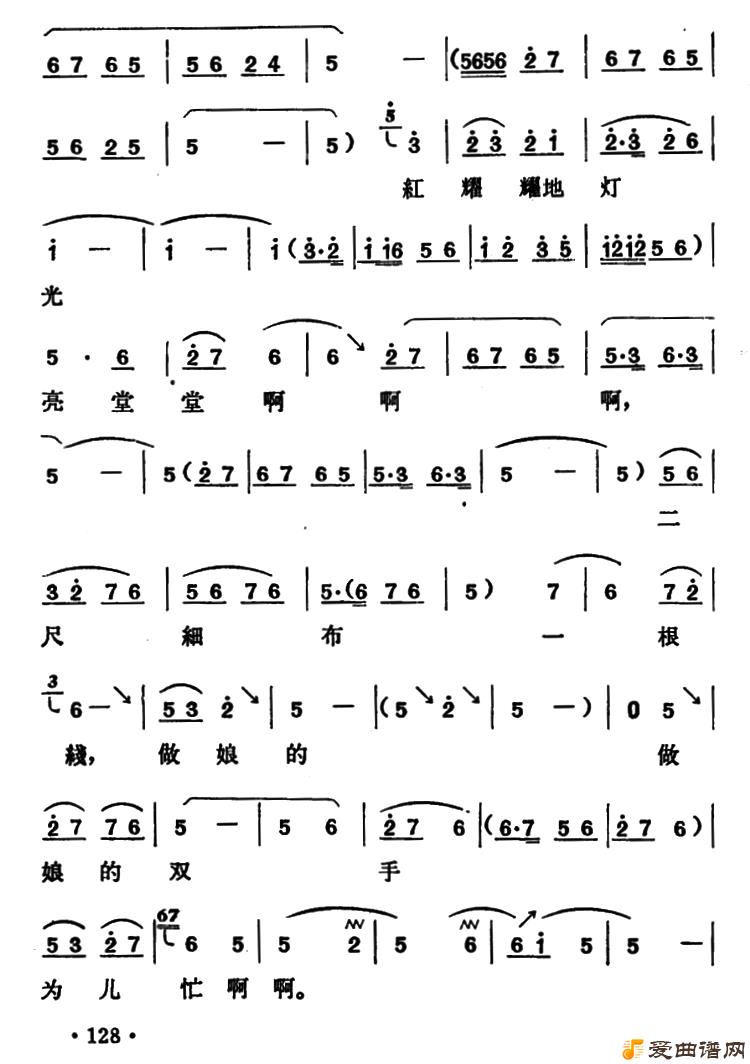 67 65 | 56 24 | 5 — | (5656 27 | 67 65 |
56 25 | 5 — | 5) 5 3 | 23 21 | 2·3 26 |
紅 耀 耀地 灯
1 — | 1 — | 1 (3·2 | 1 16 56 | 12 35 | 1212 56) |
光
5 · 6 | 27 6 | 6 27 | 67 65 | 5·3 6·3 |
亮 堂 堂 啊 啊 啊,
5 — | 5 (27 | 67 65 | 5·3 6·3 | 5 — | 5) 56 |
二
32 76 | 56 76 | 5·(6 76 | 5) 7 | 6 72 |
尺 細 布 一 根
3 6 — | 53 2 | 5 — | (5 2 | 5 —) | 0 5 |
綫, 做 娘 的 做
27 76 | 5 — | 5 6 | 27 6 | (6·7 56 | 27 6) |
娘 的 双 手
53 27 | 67 6 5 | 5 2 | 5 6 | 61 5 | 5 — |
为 儿 忙 啊 啊。
· 128 ·
爱曲谱网